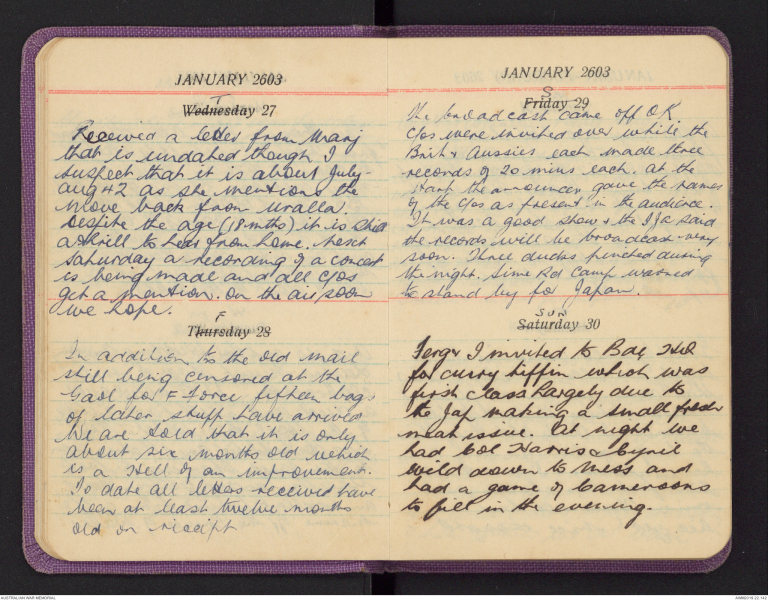 JANUARY 2603
T
Wednesday 27
Received a letter from Marj
that is undated though I
suspect that it is about July-
Aug 42 as she mentions the
move back from Uralla.
Despite the age (18 mths) it is still
a thrill to hear from home. Next
Saturday a recording of a concert
is being made and all C/os
get a mention. On the air soon
we hope.
F
Thursday 28
In addition to the old mail
still being censored at the
Gaol for F Force fifteen bags
of later stuff have arrived
We are told that it is only
about six months old which
is a Hell of an improvement.
To date all letters received have
been at least twelve months
old on receipt
JANUARY 2603
S
Friday 29
The broadcast came off OK
C/os were invited over while the
Brit & Aussies each made three
records of 20 mins each. At the
start the announcer gave the names
of the C/os as present in the audience.
It was a good show & the IJA said
the records will be broadcast very
soon. Three ducks pinched during
the night. Sime Rd Camp warned
to stand by for Japan.
SUN
Saturday 30
Ferg & I invited to Bde HQ
for curry tiffin which was
first class largely due to
the Jap making a small fresh
meat issue. At night we
had Col Harris & Cyril
Wild down to Mess and
had a game of Cameroons
to fill in the evening.
AUSTRALIAN WAR MEMORIAL